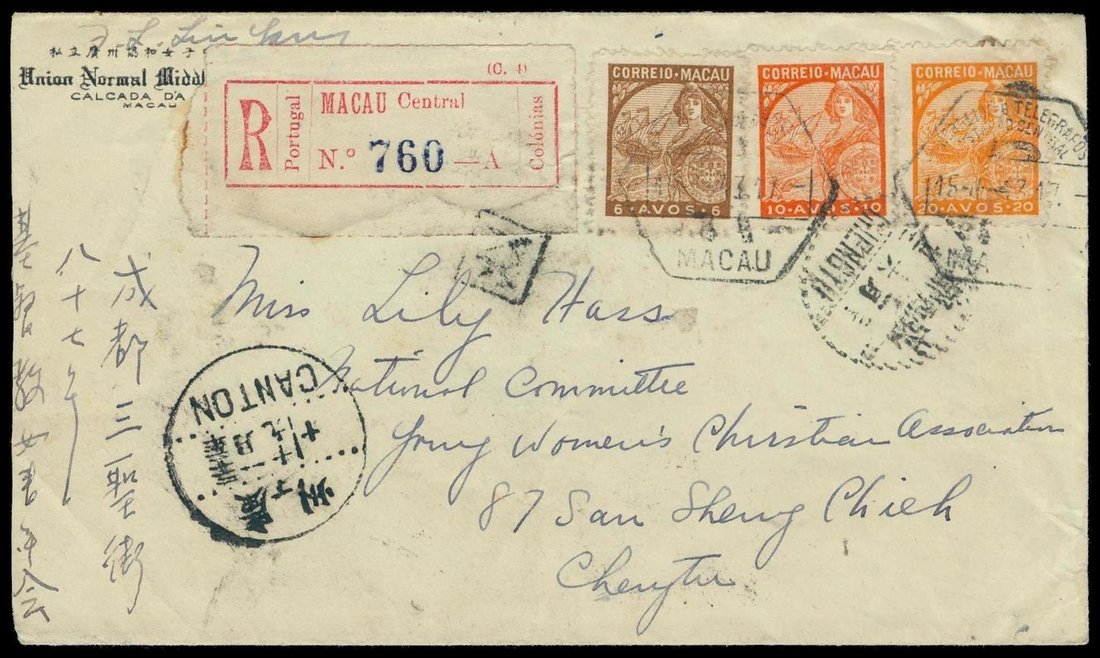 私立廣州協和女子
Union Normal Middl
CALCADA D'A
MACAU
(C. 4)
R
Portugal
MACAU Central
N.º 760 —A
Colónias
CORREIO·MACAU
6·AVOS·6
CORREIO·MACAU
10·AVOS·10
CORREIO·MACAU
20·AVOS·20
TELEGRAFOS
MACAU
Miss Lily Hass
National Committee
Young Women's Christian Association
87 San Sheng Chieh
Chengtu
CANTON
廣州
成都三聖街
八十七号